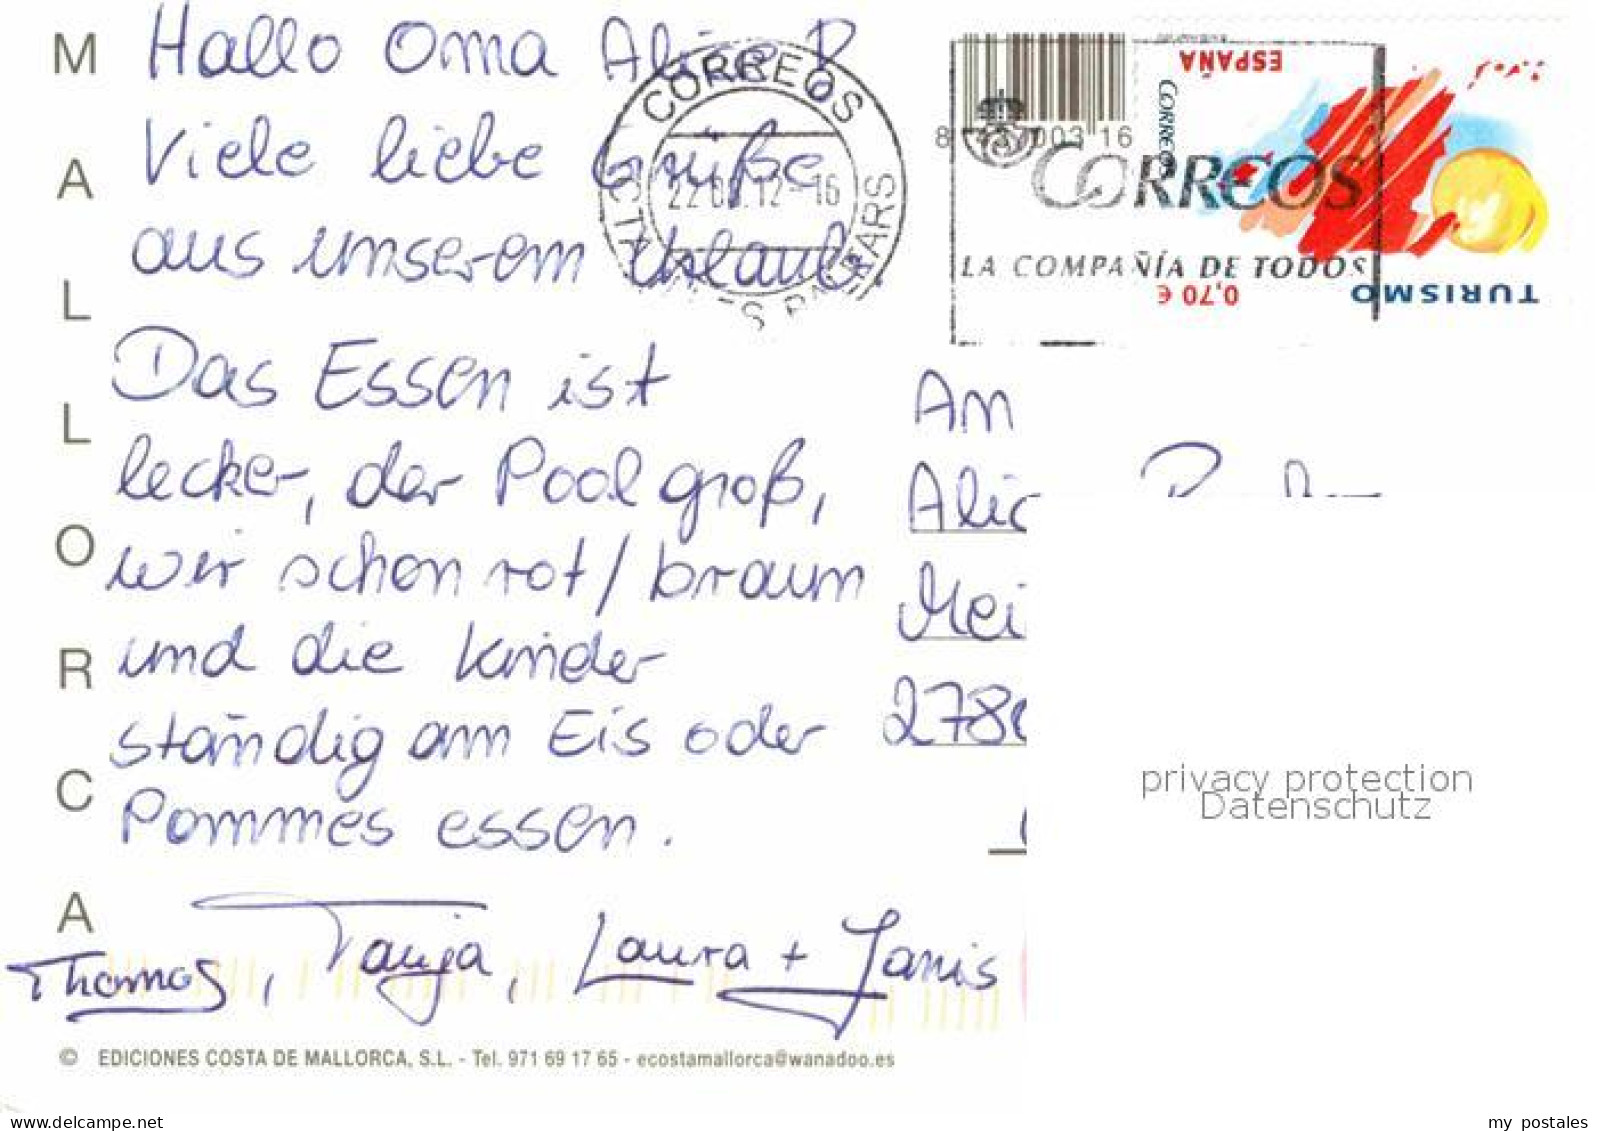 MALLORCA
Hallo Oma Alice P
Viele liebe Grüße
aus unserem Urlaub.
Das Essen ist
lecker, der Pool groß,
wir schon rot/braun
und die Kinder
ständig am Eis oder
Pommes essen.
Thomas, Tanja, Laura + Janis
© EDICIONES COSTA DE MALLORCA, S.L. - Tel. 971 69 17 65 - ecostamallorca@wanadoo.es
CORREOS
12-16
003 16
CORREOS
LA COMPAÑÍA DE TODOS
ESPAÑA
CORREOS
0,70 €
TURISMO
An
Alic
Mei
278
privacy protection
Datenschutz
www.delcampe.net
my_postales